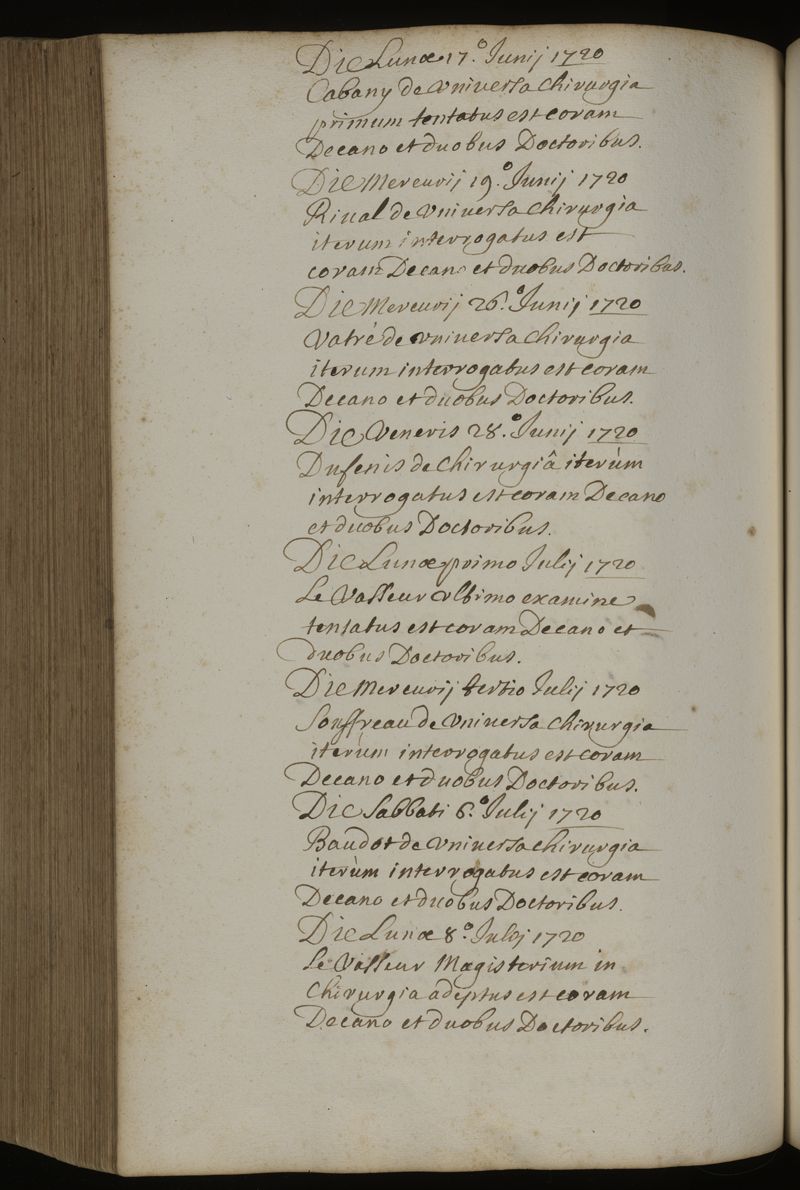 Die Lunæ 17.° Junij 1720
Cabany de vniversa chirurgia
primum tentatus est coram
Decano et duobus Doctoribus.
Die Mercurij 19.° Junij 1720
Riual de vniversa chirurgia
iterum interrogatus est
coram Decano et duobus Doctoribus.
Die Mercurij 26.° Junij 1720
Vatré de vniuersa chirurgia
iterum interrogatus est coram
Decano et duobus Doctoribus.
Die Veneris 28.° Junij 1720
Dufenis de chirurgiâ iterùm
interrogatus est coram Decano
et duobus Doctoribus.
Die Lunæ primo Julij 1720
Le Vasseur vltimo examine
tentatus est coram Decano et
duobus Doctoribus.
Die Mercurij tertio Julij 1720
Souffreau de vniuersa chirurgia
iterùm interrogatus est coram
Decano et duobus Doctoribus.
Die Sabbati 6.° Julij 1720
Baudot de vniuersa chirurgia
iterùm interrogatus est coram
Decano et duobus Doctoribus.
Die Lunæ 8.° Julij 1720
Le Vasseur Magisterium in
chirurgia adeptus est coram
Decano et duobus Doctoribus.